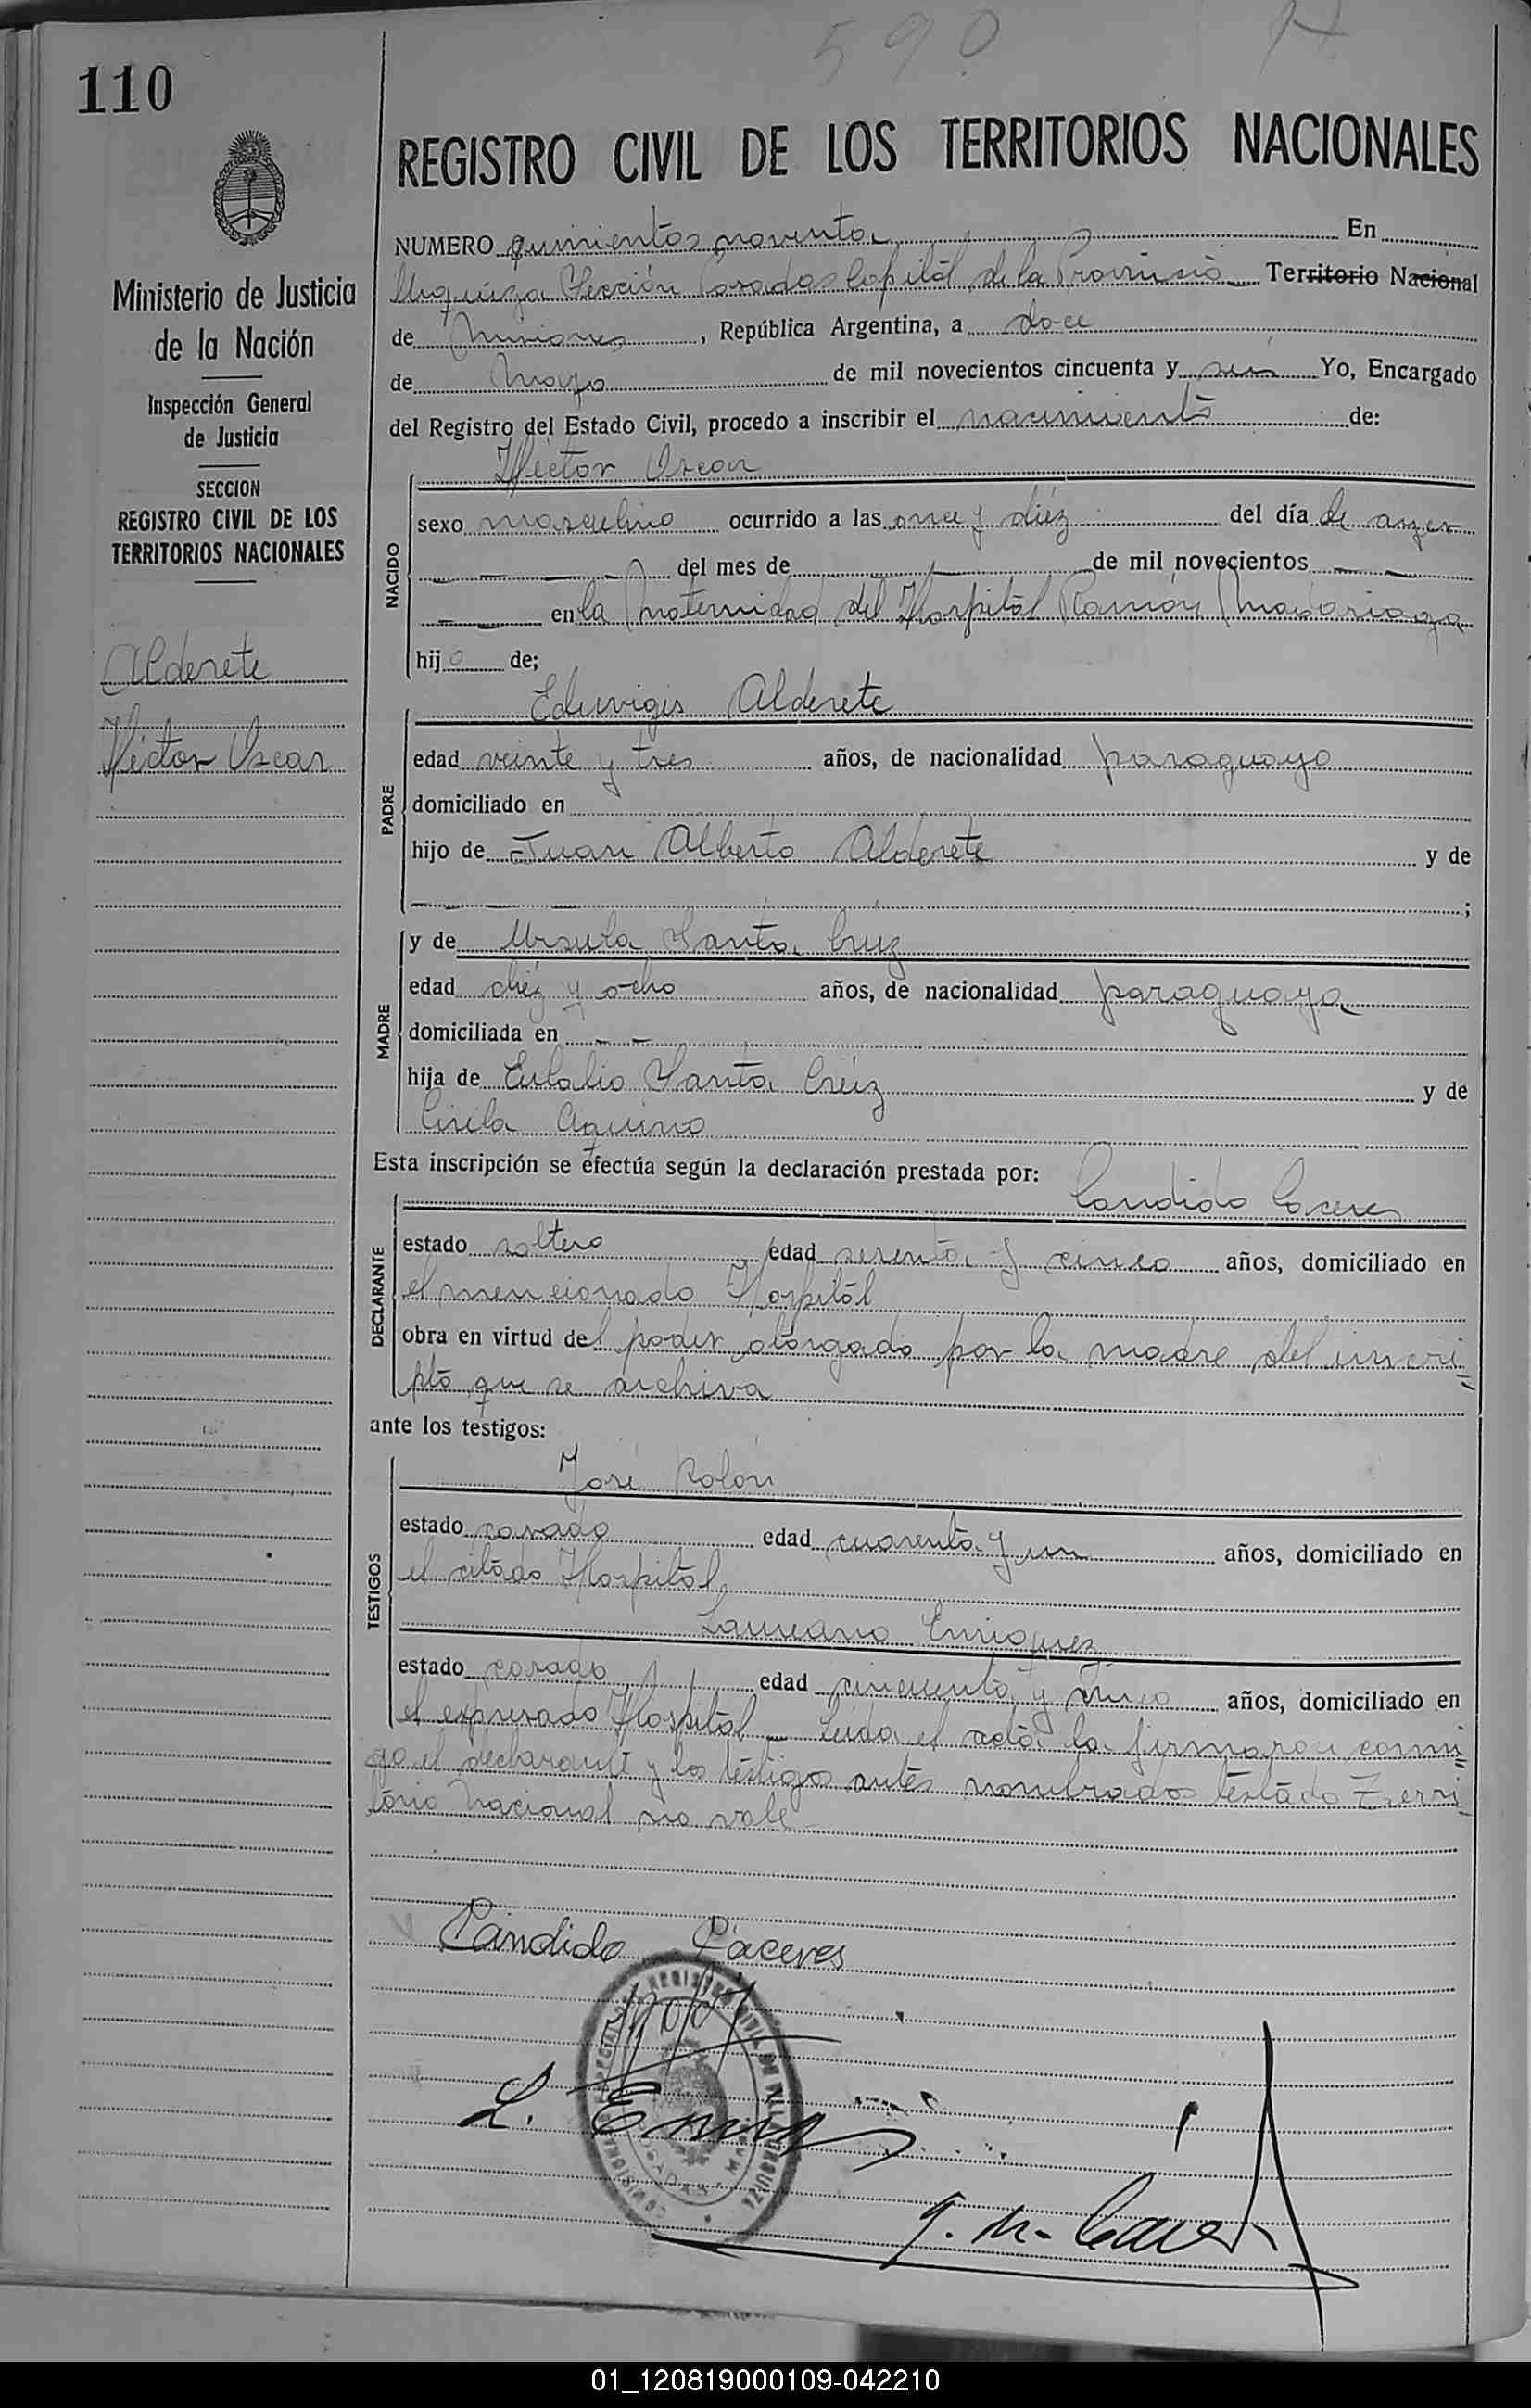 590
110
REGISTRO CIVIL DE LOS TERRITORIOS NACIONALES
Ministerio de Justicia
de la Nación
Inspección General
de Justicia
SECCION
REGISTRO CIVIL DE LOS
TERRITORIOS NACIONALES
Alderete
Héctor Oscar
NUMERO quinientos noventa En
Urquiza Sección Posadas Capital de la Provincia Territorio Nacional
de Misiones, República Argentina, a doce
de Mayo de mil novecientos cincuenta y seis Yo, Encargado
del Registro del Estado Civil, procedo a inscribir el nacimiento de:
Héctor Oscar
NACIDO
sexo masculino ocurrido a las once y diéz del día de ayer
del mes de de mil novecientos
en la Maternidad del Hospital Ramón Madariaga
hijo de;
Eduvigis Alderete
PADRE
edad veinte y tres años, de nacionalidad paraguayo
domiciliado en
hijo de Juan Alberto Alderete y de
;
MADRE
y de Ursula Santa Cruz
edad diéz y ocho años, de nacionalidad paraguaya
domiciliada en
hija de Eulalio Santa Cruz y de
Cirila Aquino
Esta inscripción se efectúa según la declaración prestada por:
Candido Caceres
DECLARANTE
estado soltero edad sesenta y cinco años, domiciliado en
el mencionado Hospital
obra en virtud del poder otorgado por la madre del inscri=
pto que se archiva
ante los testigos:
TESTIGOS
José Rolón
estado casado edad cuarenta y un años, domiciliado en
el citado Hospital,
Laureano Enriquez
estado casado edad cincuenta y cinco años, domiciliado en
el expresado Hospital - Leida el acta la firmaron conmi=
go el declarante y los testigos antes nombrados testado Terri
torio Nacional no vale
Candido Cáceres
L. Enriq
01_120819000109-042210